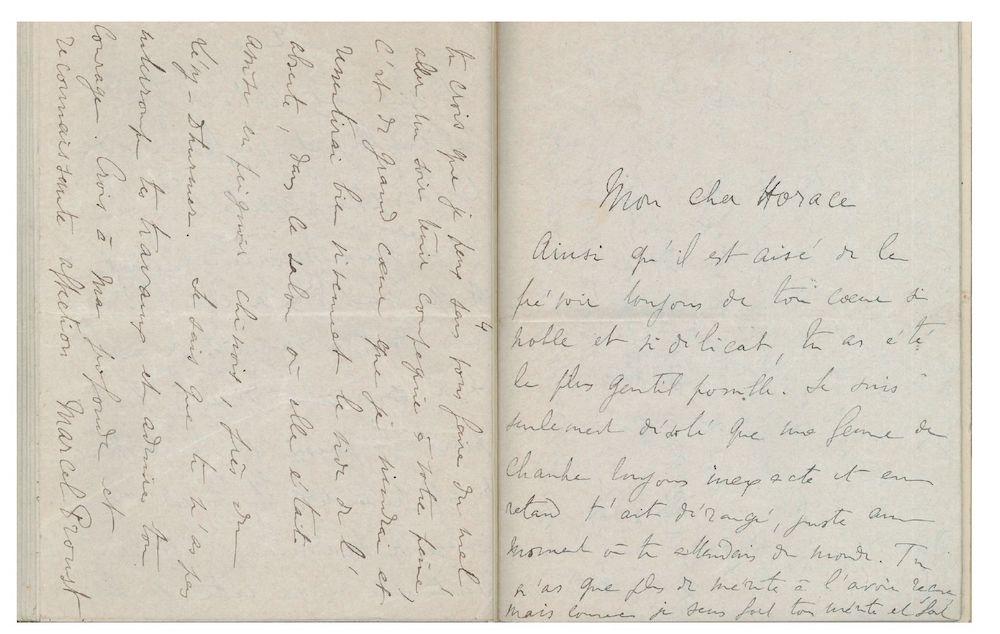 Mon cher Horace
Ainsi qu'il est aisé de le
prévoir toujours de ton cœur si
noble et si délicat, tu as été
le plus gentil possible. Je suis
seulement désolé que une femme de
chambre toujours inexacte et en
retard t'ait dérangé, juste au
moment où tu attendais du monde. Tu
n'as que plus de mérite à l'avoir reçue
mais comme je sens ton mérite et
4
tu crois que je peux sans vous faire du mal,
aller un soir tenir compagnie à votre peine,
c'est de grand cœur que je viendrai et
ressentirai bien vivement le vide de l'
absente, dans le salon où elle était
assise en peignoir chinois, près du
Lévy-Dhurmer. Je sais que tu n'as pas
interrompu tes travaux et admire ton
courage. Crois à ma profonde et
reconnaissante affection Marcel Proust